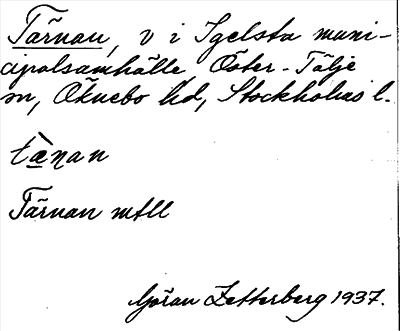 Tärnan, v i Igelsta muni-
cipalsamhälle, Öster-Tälje
sn, Öknebo hd, Stockholms l.
tæ̀ṇan
Tärnan mtll
Göran Zetterberg 1937.